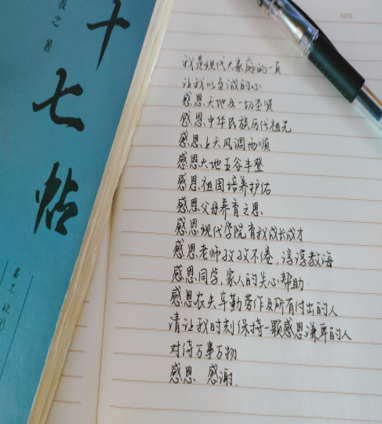 十七帖
羲之 著
我是现代大家庭的一员
让我以至诚的心
感恩天地及一切圣贤
感恩中华民族历代祖先
感恩上天风调雨顺
感恩大地五谷丰登
感恩祖国培养护佑
感恩父母养育之恩
感恩现代学院育我成长成才
感恩老师孜孜不倦、谆谆教诲
感恩同学,家人的关心帮助.
感恩农夫辛勤劳作及所有付出的人
请让我时刻保持一颗感恩谦卑的人
对待万事万物
感恩 感谢.